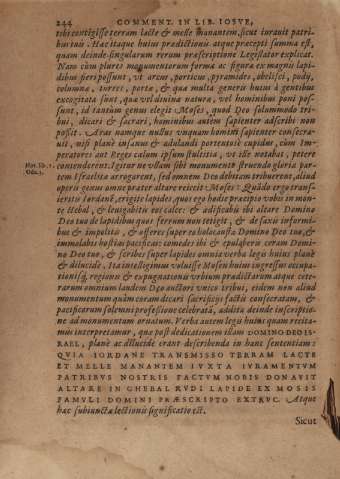 244 COMMENT. IN LIB. IOSVE,
tibi contigisse terram lacte & melle manantem, sicut iurauit patri-
bus tuis. Hac itaque huius prædictionis atque præcepti summa est,
quam deinde singularum rerum præscriptione Legislator explicat.
Nam cùm plures magnumentorum formæ ac figuræ ex magnis lapi-
dibus fieri possunt, vt arcus, porticus, pyramides, obelisci, podij,
columnæ, turres, portæ, & quæ multa generis huius à gentibus
excogitata sunt, quæ vel diuina naturæ, vel hominibus poni pos-
sunt, id tantùm genus elegit Moses, quod Deo solummodo tri-
bui, dicari & sacrari, hominibus autem sapienter adscribi non
possit. Aras namque nullus vnquam homini sapienter consecra-
uit, nisi planè insanus & adulandi portentosè cupidus, cùm Im-
peratores aut Reges talem ipsum stultitia, vt ille notabat, petere
Hor. lib. 1.
Oda. 3.
contenderent. Igitur ne vllam sibi monumento struendo gloriæ par-
tem Israelitæ arrogarent, sed omnem Deo debitam tribuerent, aliud
operis genus omne præter altare reiicit Moses: Quãdo ergo trans-
ieritis Iordanẽ, erigite lapides, quos ego hodie præcipio vobis in mon-
te Hebal, & leuigabitis eos calce: & ædificabis ibi altare Domino
Deo tuo de lapidibus quos ferrum non tetigit, & de saxis informi-
bus & impolitis, & offeres super eo holocausta Domino Deo tuo, &
immolabis hostias pacificas: comedes ibi & epulaberis ceram Domi-
no Deo tuo, & scribes super lapides omnia verba legis huius planè
& dilucidè. Ita intelligimus voluisse Mosen huius ingressus occupa-
tionisq́; regionis & expugnationis vrbium prædictarum atque cete-
rarum omnium laudem Deo auctori vnico tribui, eidem non aliud
monumentum quàm coram dicari sacrificijs factis consecratam, &
pacificorum solemni professione celebrata, addita deinde inscriptio-
ne ad monumentum ornatum. Verba autem legis huius quam recita-
mus interpretamur, quæ post dedicationem illam DOMINO DEO IS-
RAEL, planè ac dilucidè erant describenda in hanc sententiam:
QVIA IORDANE TRANSMISSO TERRAM LACTE
ET MELLE MANANTEM IVXTA IVRAMENTVM
PATRIBVS NOSTRIS FACTVM NOBIS DONAVIT
ALTARE IN GHEBAL RVDI LAPIDE EX MOSIS
FAMVLI DOMINI PRÆSCRIPTO EXTRVC. Atque
hæc subiunctæ lectionis significatio est.
Sicut